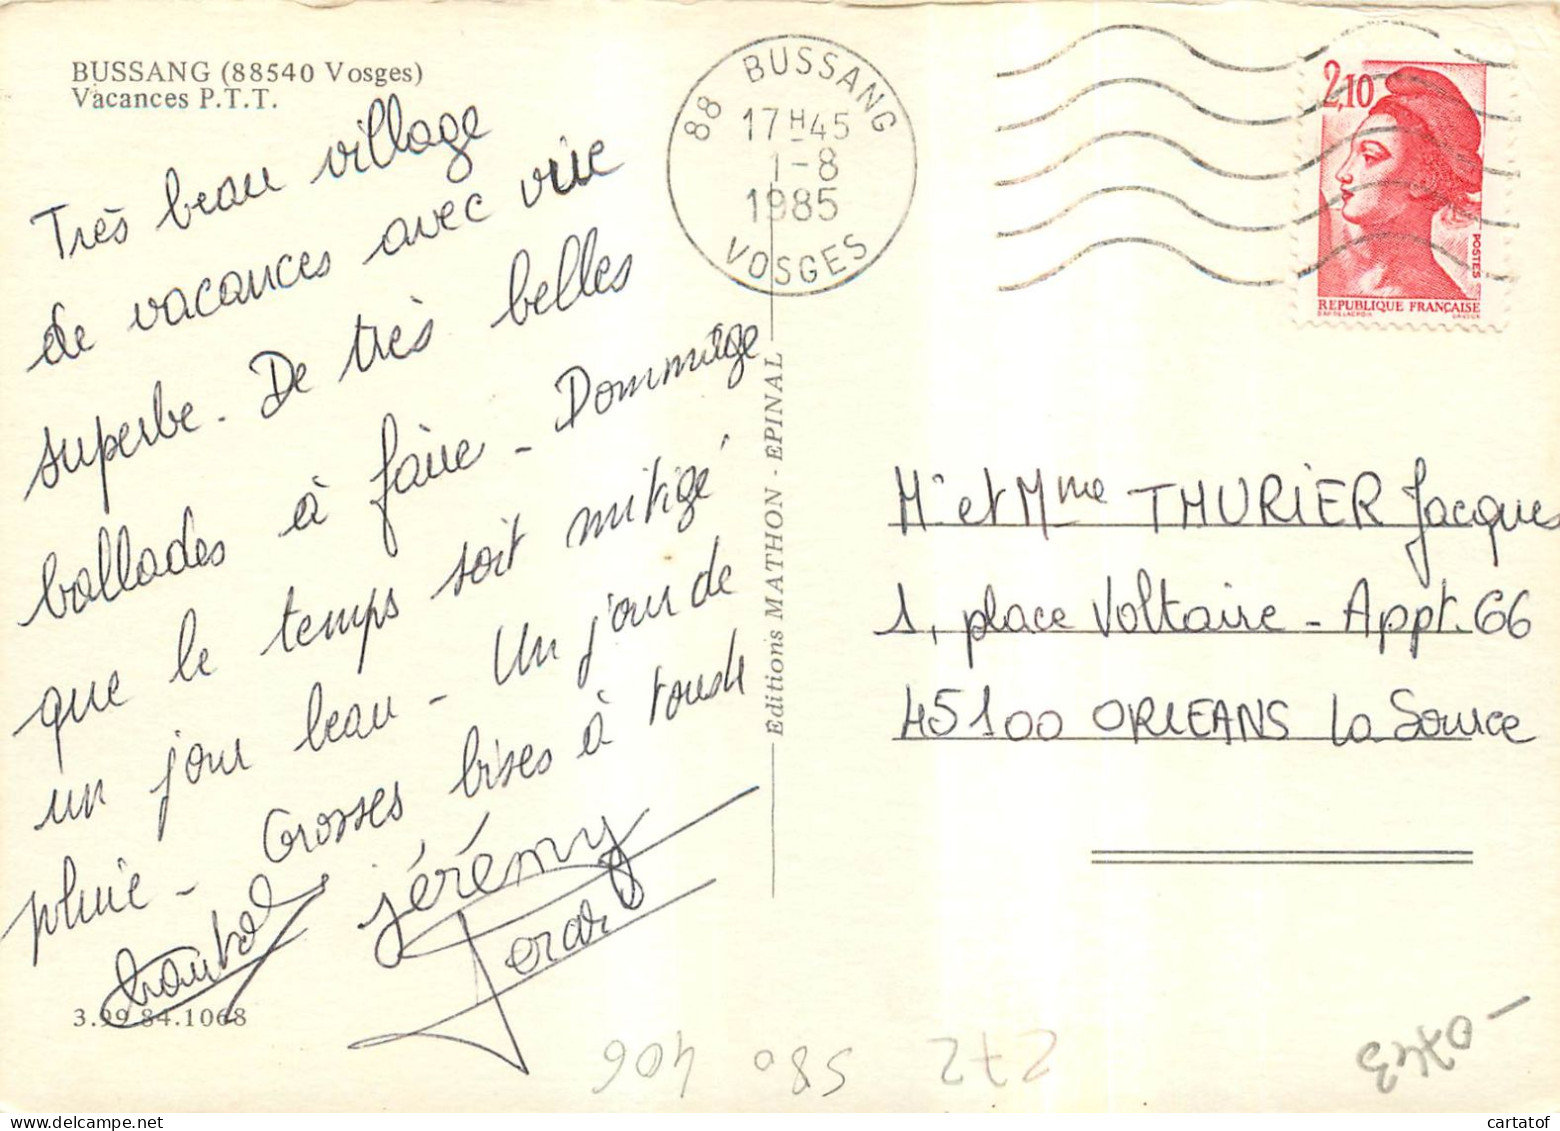 BUSSANG (88540 Vosges)
Vacances P.T.T.
Très beau village
de vacances avec vue
superbe. De très belles
ballades à faire - Dommage
que le temps soit mitigé
un jour beau - Un jour de
pluie - Grosses bises à tous
Jérémy
3.99 84.1068
Editions MATHON - EPINAL
88 BUSSANG
17 H 45
1-8
1985
VOSGES
2,10
POSTES
REPUBLIQUE FRANÇAISE
Mr et Mme THURIER Jacques
1, place Voltaire - Appt. 66
45100 ORLEANS La Source
406 580 272
cartatof